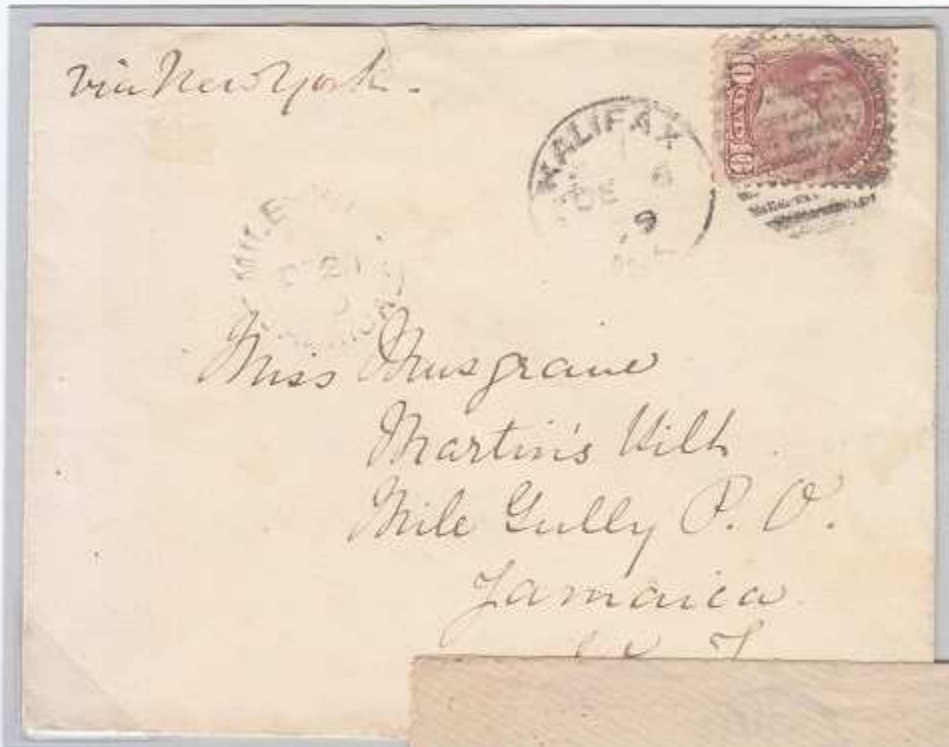 via New York.
HALIFAX
DE 6
9
MILE
Miss Musgrave
Martin's Hill
Mile Gully P. O.
Jamaica